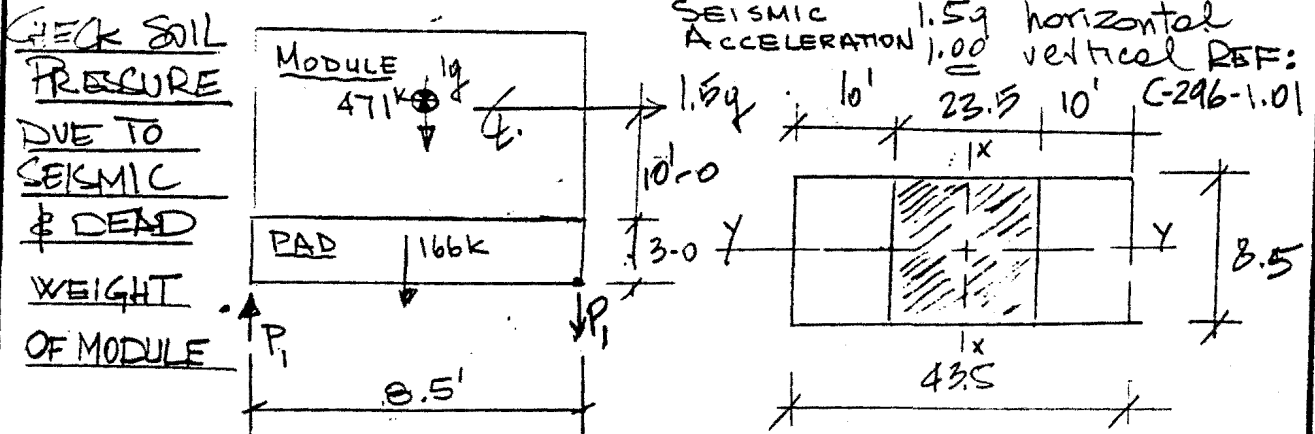 CHECK SOIL
PRESSURE
DUE TO
SEISMIC
& DEAD
WEIGHT
OF MODULE
MODULE
471k
1g
1.5g
10'-0
PAD
166k
3-0
P1
P1
8.5'
SEISMIC 1.5g horizontal
ACCELERATION 1.00 vertical REF:
C-296-1.01
10' 23.5 10'
x
Y Y
8.5
x
43.5